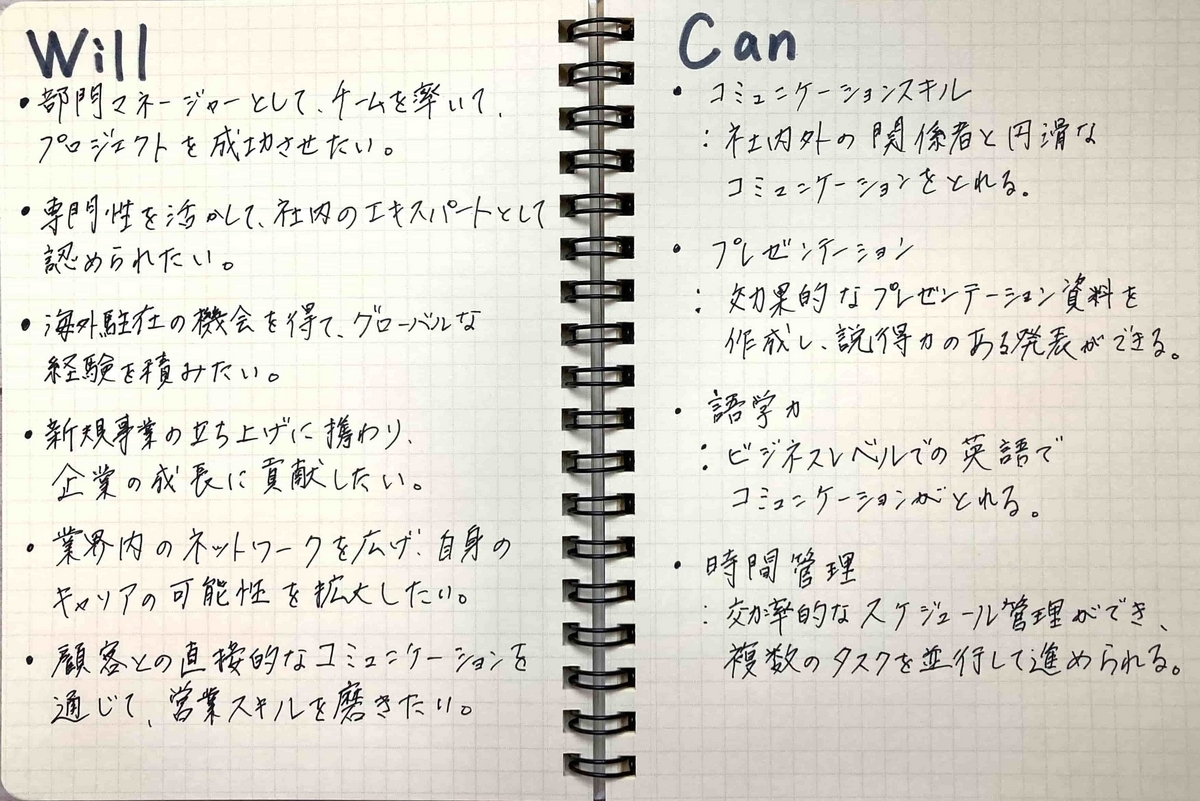 Will
・部門マネージャーとして、チームを率いて、
プロジェクトを成功させたい。
・専門性を活かして、社内のエキスパートとして
認められたい。
・海外駐在の機会を得て、グローバルな
経験を積みたい。
・新規事業の立ち上げに携わり、
企業の成長に貢献したい。
・業界内のネットワークを広げ、自身の
キャリアの可能性を拡大したい。
・顧客との直接的なコミュニケーションを
通じて、営業スキルを磨きたい。
Can
・コミュニケーションスキル
：社内外の関係者と円滑な
コミュニケーションをとれる。
・プレゼンテーション
：効果的なプレゼンテーション資料を
作成し、説得力のある発表ができる。
・語学力
：ビジネスレベルでの英語で
コミュニケーションがとれる。
・時間管理
：効率的なスケジュール管理ができ、
複数のタスクを並行して進められる。